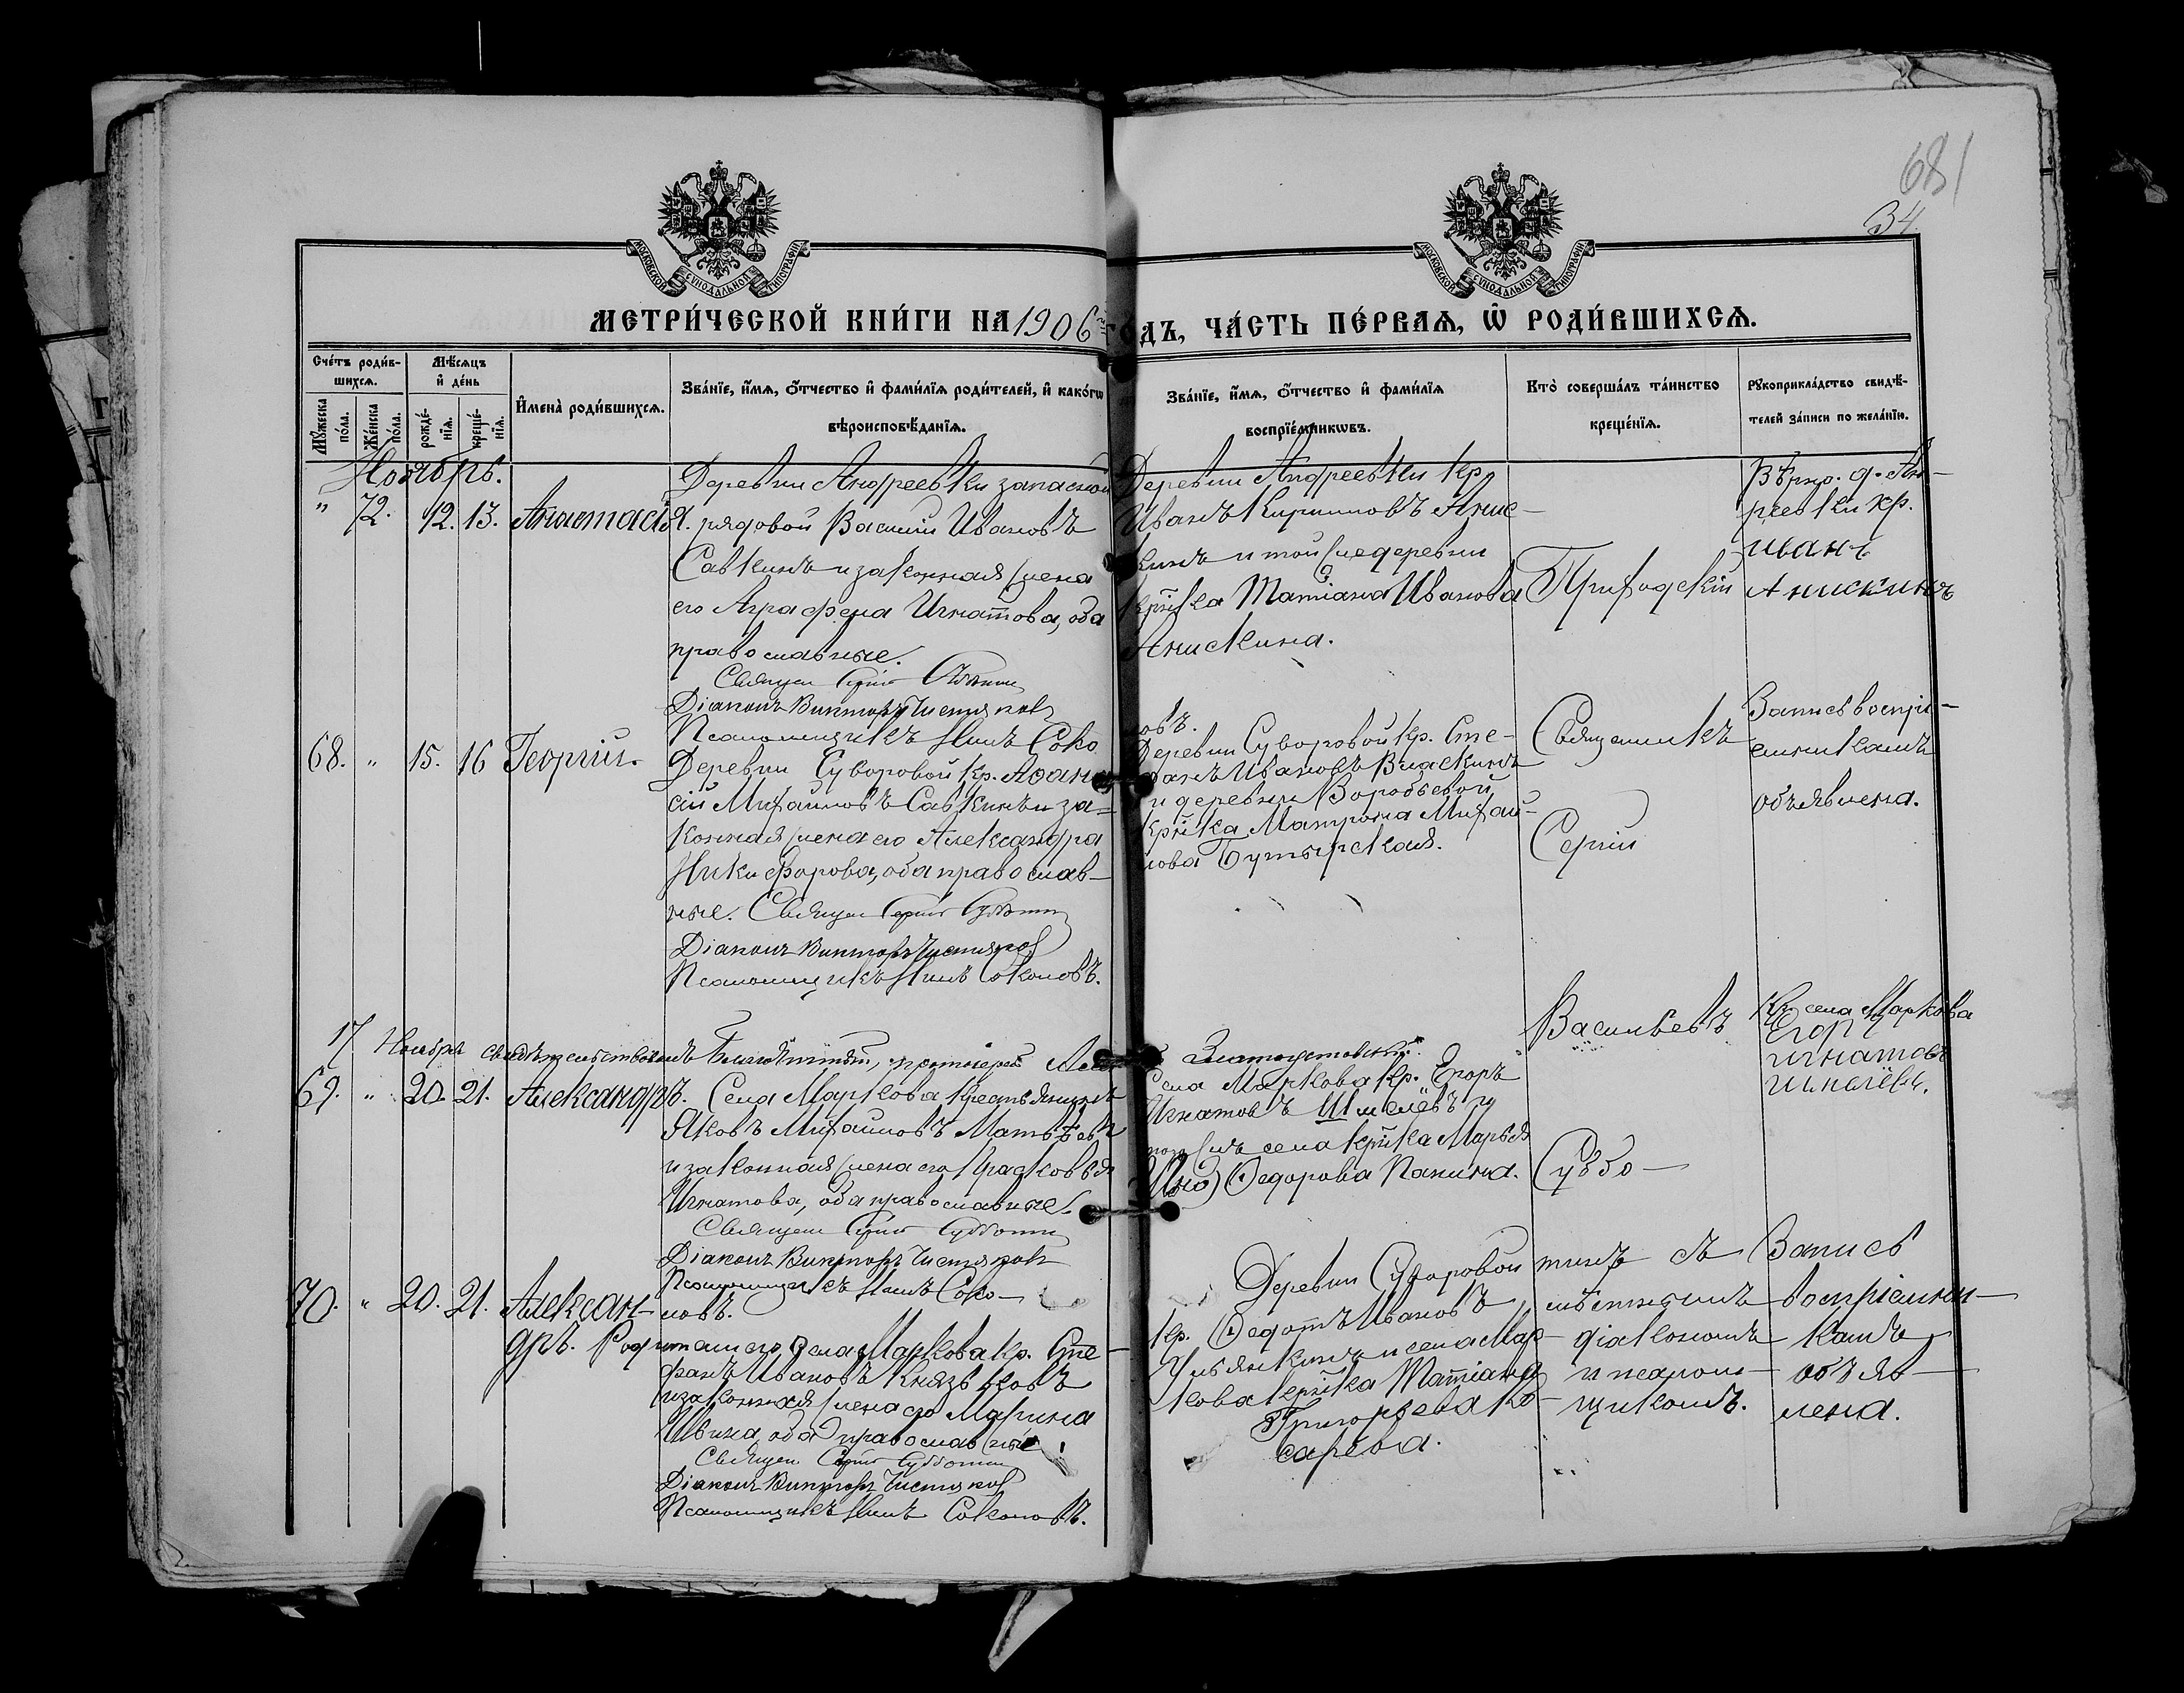 681
34.
МОСКОВСКОЙ СѴНОДАЛЬНОЙ ТИПОГРАФІИ
МОСКОВСКОЙ СѴНОДАЛЬНОЙ ТИПОГРАФІИ
МЕТРИ́ЧЕСКОЙ КНИ́ГИ НА 1906 ГО́ДЪ, ЧА́СТЬ ПЕ́РВАѦ, Ѡ҆ РОДИ́ВШИХСѦ.
Сче́тъ роди́в-
шихсѧ.
Мꙋ́жеска по́ла.
Же́нска по́ла.
Мѣ́сѧцъ
и҆ де́нь
рожде́-
нїѧ.
креще́-
нїѧ.
И҆мена̀ роди́вшихсѧ.
Зва́нїе, и҆́мѧ, ѻ҆́тчество и҆ фами́лїѧ роди́телей, и҆ како́гѡ
вѣроисповѣ́данїѧ.
Зва́нїе, и҆́мѧ, ѻ҆́тчество и҆ фами́лїѧ
воспрїе́мникѡвъ.
Кто̀ соверша́лъ та́инство
креще́нїѧ.
Рꙋкоприкла́дство свидѣ́-
телей за́писи по жела́нїю.
Ноябрь.
" 72. 12. 13. Анастасія.
Деревни Андреевки запасной
рядовой Василій Ивановъ
Савкинъ и законная жена
его Аграфена Игнатова, оба
православные.
Священ Сергій Субботин
Діаконъ Викторъ Чистяков
Псаломщикъ Нилъ Соко
Деревни Андреевки кр.
Иванъ Кирилловъ Анис-
кинъ и той же деревни
кр͠нка Татіана Иванова
Анискина.
Приходскій
Вѣрно. д. Ан-
реевки кр.
Иванъ
Анискинъ
68. " 15. 16 Георгій.
ловъ.
Деревни Суворовой кр. Аѳана
сій Михайловъ Савкинъ и за-
конная жена его Александра
Никифорова, оба православ-
ные. Священ Сергій Субботин
Діаконъ Викторъ Чистяков
Псаломщикъ Нилъ Соколовъ.
Деревни Суворовой кр. Сте-
фанъ Ивановъ Власкинъ
и деревни Воробьевой
кр͠нка Матрона Михай-
лова Бутырская.
Священникъ
Сергій
Запись воспрі-
емникамъ
объявлена.
17 Ноября свидѣтельствовалъ Благочинный, протоіерей Златоустовскій.
69. " 20. 21. Александръ.
Села Маркова крестьянинъ
Яковъ Михайловъ Матвѣевъ
и законная жена его Прасковья
Игнатова, оба православные.
Священ Сергій Субботин
Діаконъ Викторъ Чистяков
Псаломщикъ Нилъ Соко-
ловъ.
Села Маркова кр. Егоръ
Игнатовъ Шмелёвъ и
того жъ села кр͠нка Марья
Ѳедорова Панина.
Васильевъ
Суббо-
Кр села Маркова
Егор
игнатов
70. " 20. 21. Алексан-
дръ. Родители его села Маркова кр. Сте-
фанъ Ивановъ Князьковъ
и законная жена его Марина
оба православные
Священ Сергій Субботин
Діаконъ Викторъ Чистяков
Псаломщикъ Нилъ Соколовъ.
Деревни Суворовой
кр. Ѳедотъ Ивановъ
Ульянкинъ и села Мар-
кова кр͠нка Татіана
Григорьева Ко-
сарева.
тинъ съ
мѣстнымъ
діакономъ
и псалом-
щикомъ.
Запись
воспріемни-
камъ
объяв-
лена.